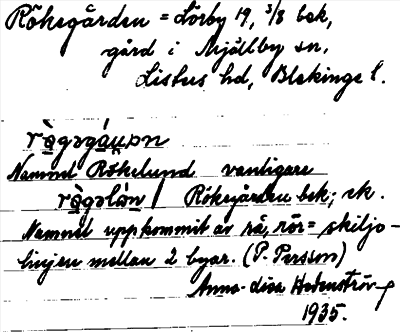 Rökegården = Lörby 19, 3/8 bek,
gård i Mjällby sn.
Listers hd, Blekinge l.
Namnet Rökelund vanligare
Rökegården bek; sk.
Namnet uppkommit av rå, rör = skiljo-
linjen mellan 2 byar. (P. Persson)
Anna-Lisa
1935.